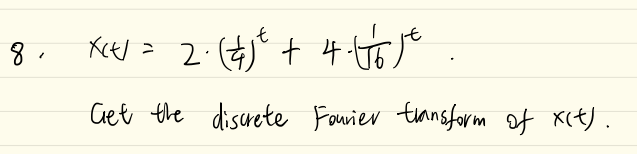 8. x(t) = 2·(1/4)^t + 4·(1/16)^t .
Get the discrete Fourier transform of x(t).